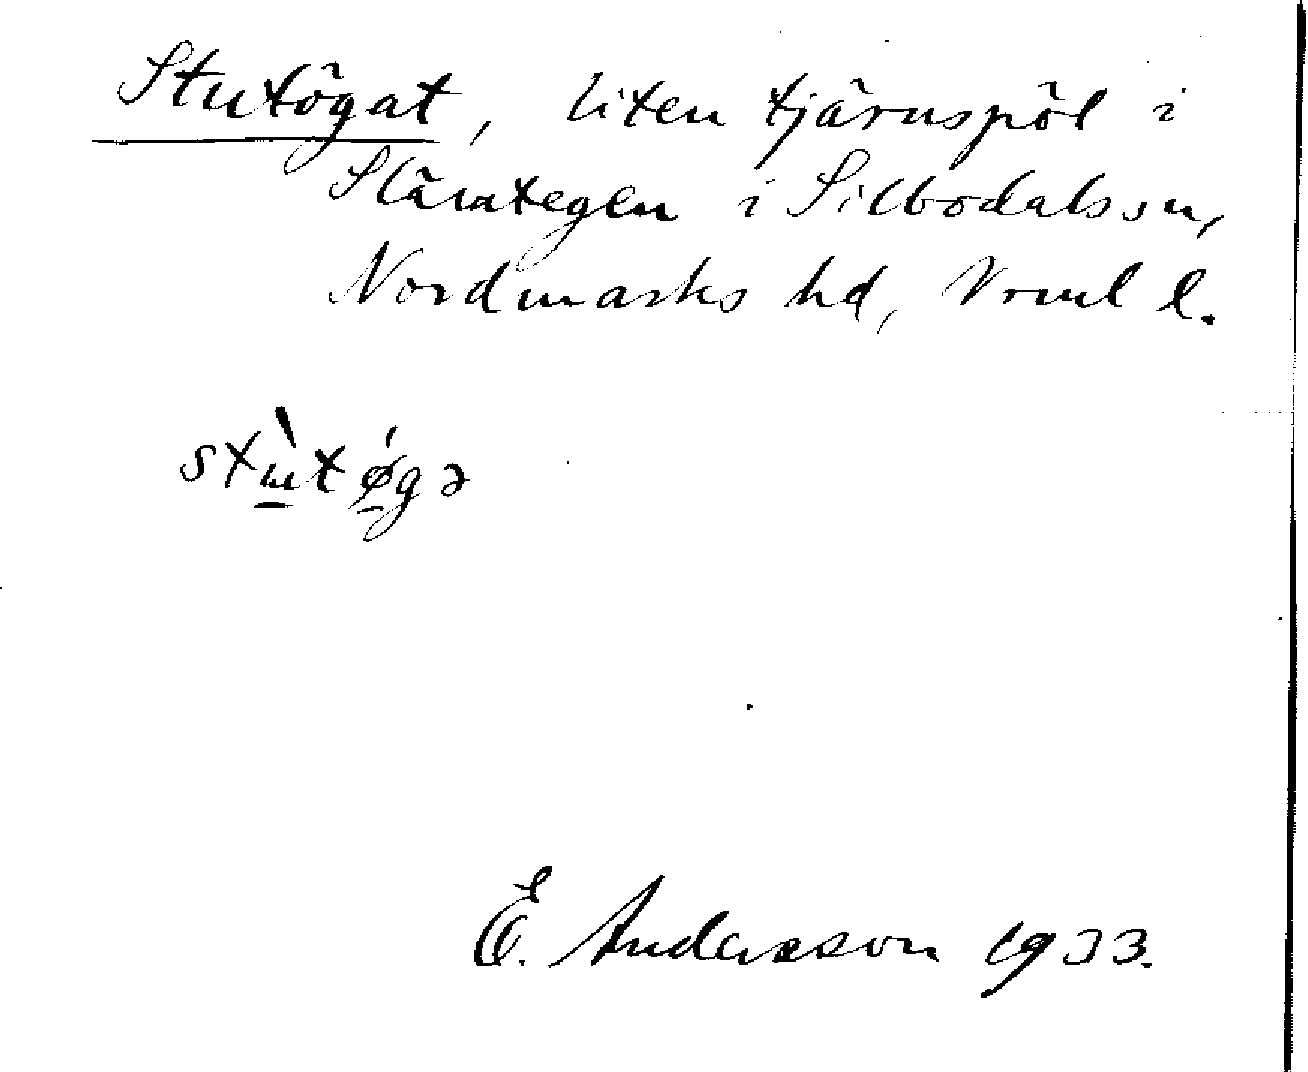 Stutögat, liten tjärnspöl i
Slärtegen i Silbodals sn,
Nordmarks hd, Vrml l.
stɯ̀tǿgə
E. Andersson 1933.